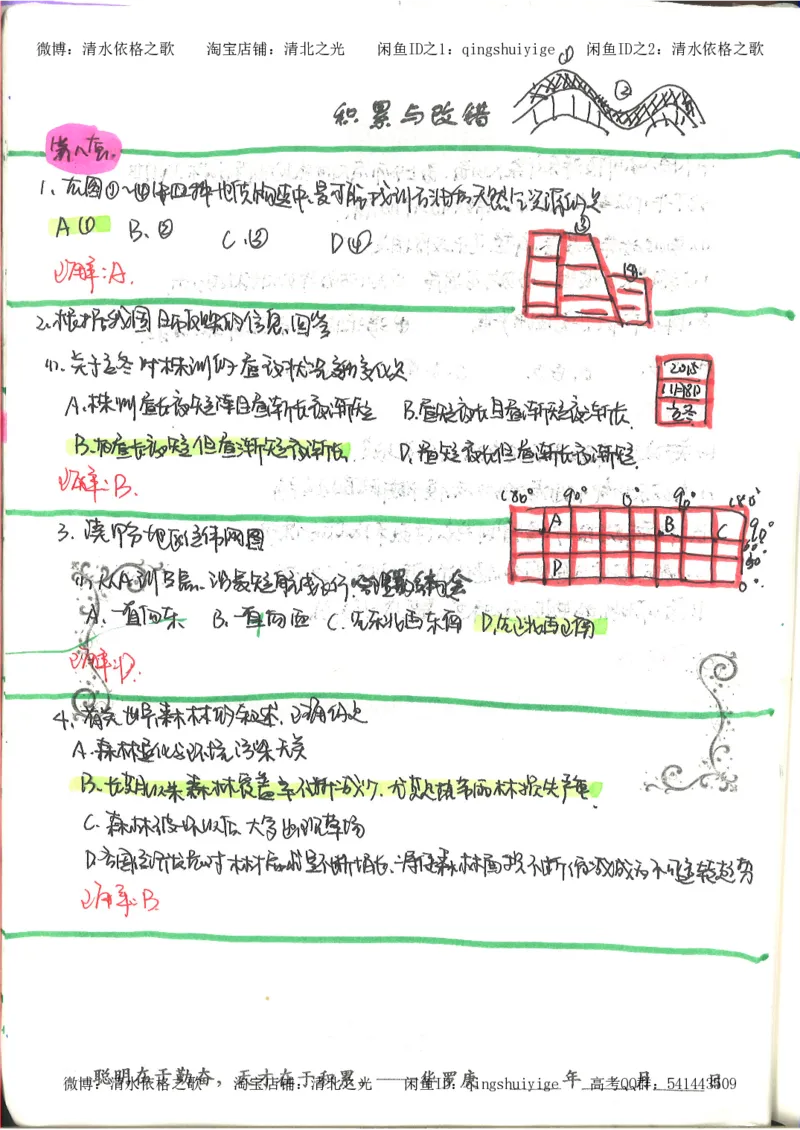 微博：清水依格之歌 淘宝店铺：清北之光 闲鱼ID之1：qingshuiyige 闲鱼ID之2：清水依格之歌
① ②
积累与改错
第八套.
1、在图①~④中四种地质构造中,最可能找到石油和天然气资源的是
A① B、② C.③ D④
③ ④
正解:A.
2.根据我国日历反映的信息,回答
(1).关于立冬时株洲的昼夜状况和变化是
2015
11月8日
立冬
A.株洲昼长夜短且昼渐长夜渐短 B.昼短夜长且昼渐短夜渐长.
B.昼长夜短但昼渐短夜渐长 D.昼短夜长但昼渐长夜渐短.
正解:B.
180° 90° 0° 90° 180°
A B C D
90° 60° 30° 0°
3.读部分地区经纬网图
(1)从A到B点,沿最短航线飞行,
A、一直向东 B、一直向西 C.先东北再东南 D,先正北再正南
正解:D.
4、有关世界森林的叙述,正确的是
A.森林退化与环境污染无关
B.长期以来森林覆盖率不断减少,
C.森林破坏以后,大多出现草场
D.各国经济发展对木材需求量不断增长,导致森林面积不断缩减成为不可逆转趋势
正解:B
聪明在于勤奋，天才在于积累。——华罗庚 年 月 日
微博：清水依格之歌 淘宝店铺：清北之光 闲鱼ID：qingshuiyige 高考QQ群：541443509